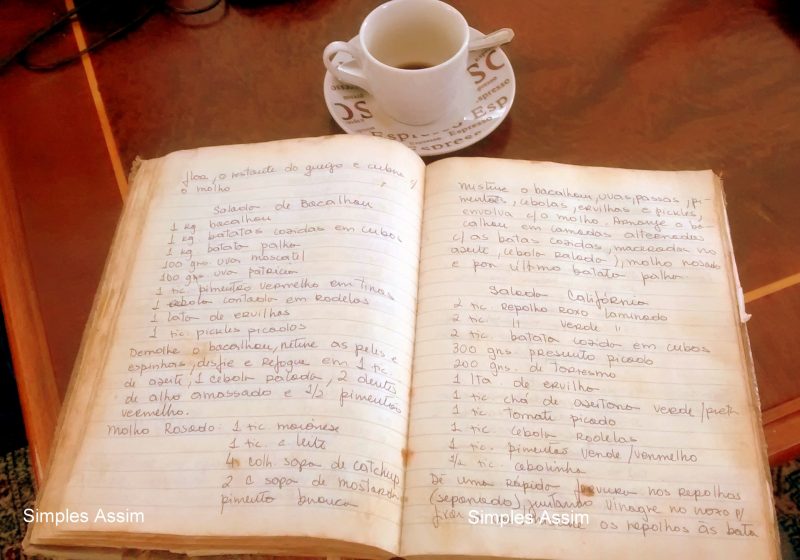 OSC
Espresso
Espresso
flor, o restante do queijo e cubra c/
o molho
Salada de Bacalhau
1 kg bacalhau
1 kg batatas cozidas em cubos
1 kg batata palha
100 grs. uva moscatel
100 grs uva patricia
1 tic pimentão vermelho em tiras
1 cebola cortada em rodelas
1 lata de ervilhas
1 tic. pickles picados
Demolhe o bacalhau, retire as peles e
espinhas, desfie e refogue em 1 tic.
de azeite, 1 cebola ralada, 2 dentes
de alho amassado e 1/2 pimentão
vermelho.
Molho Rosado: 1 tic. maionese
1 tic. c leite
4 colh sopa de catchup
2 c sopa de mostarda
pimenta branca
Misture o bacalhau, uvas, passas, pi-
mentões, cebolas, ervilhas e pickles,
envolva c/ o molho. Arrange o ba-
calhau em camadas alternadas
c/ as batas cozidas, macerada no
azeite, cebola ralada), molho rosado
e por último batata palha.
Salada Califórnia
2 tic. repolho roxo laminado
2 tic. " verde "
2 tic. batata cozida em cubos
300 grs. presunto picado
200 grs. de torresmo
1 lta. de ervilha
1 tic chá de azeitona verde/preta
1 tic. tomate picado
1 tic. cebola rodelas
1 tic. pimentão verde/vermelho
1/2 tic. cebolinha
Dê uma rápida fervura nos repolhos
(separado), juntando vinagre no roxo p/
os repolhos às bata
Simples Assim
Simples Assim